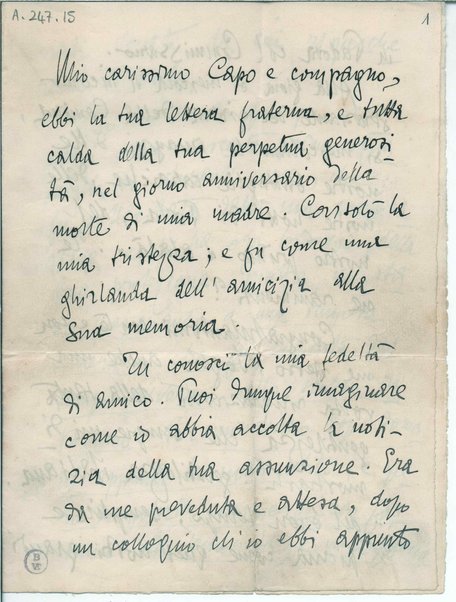 A. 247. 15
1
Mio carissimo Capo e compagno,
ebbi la tua lettera fraterna, e tutta
calda della tua perpetua generosi
tà, nel giorno anniversario della
morte di mia madre. Consolò la
mia tristezza; e fu come una
ghirlanda dell'amicizia alla
sua memoria.
Tu conosci la mia fedeltà
di amico. Puoi dunque imaginare
come io abbia accolta la noti-
zia della tua assunzione. Era
da me preveduta e attesa, dopo
un colloquio ch'io ebbi appunto